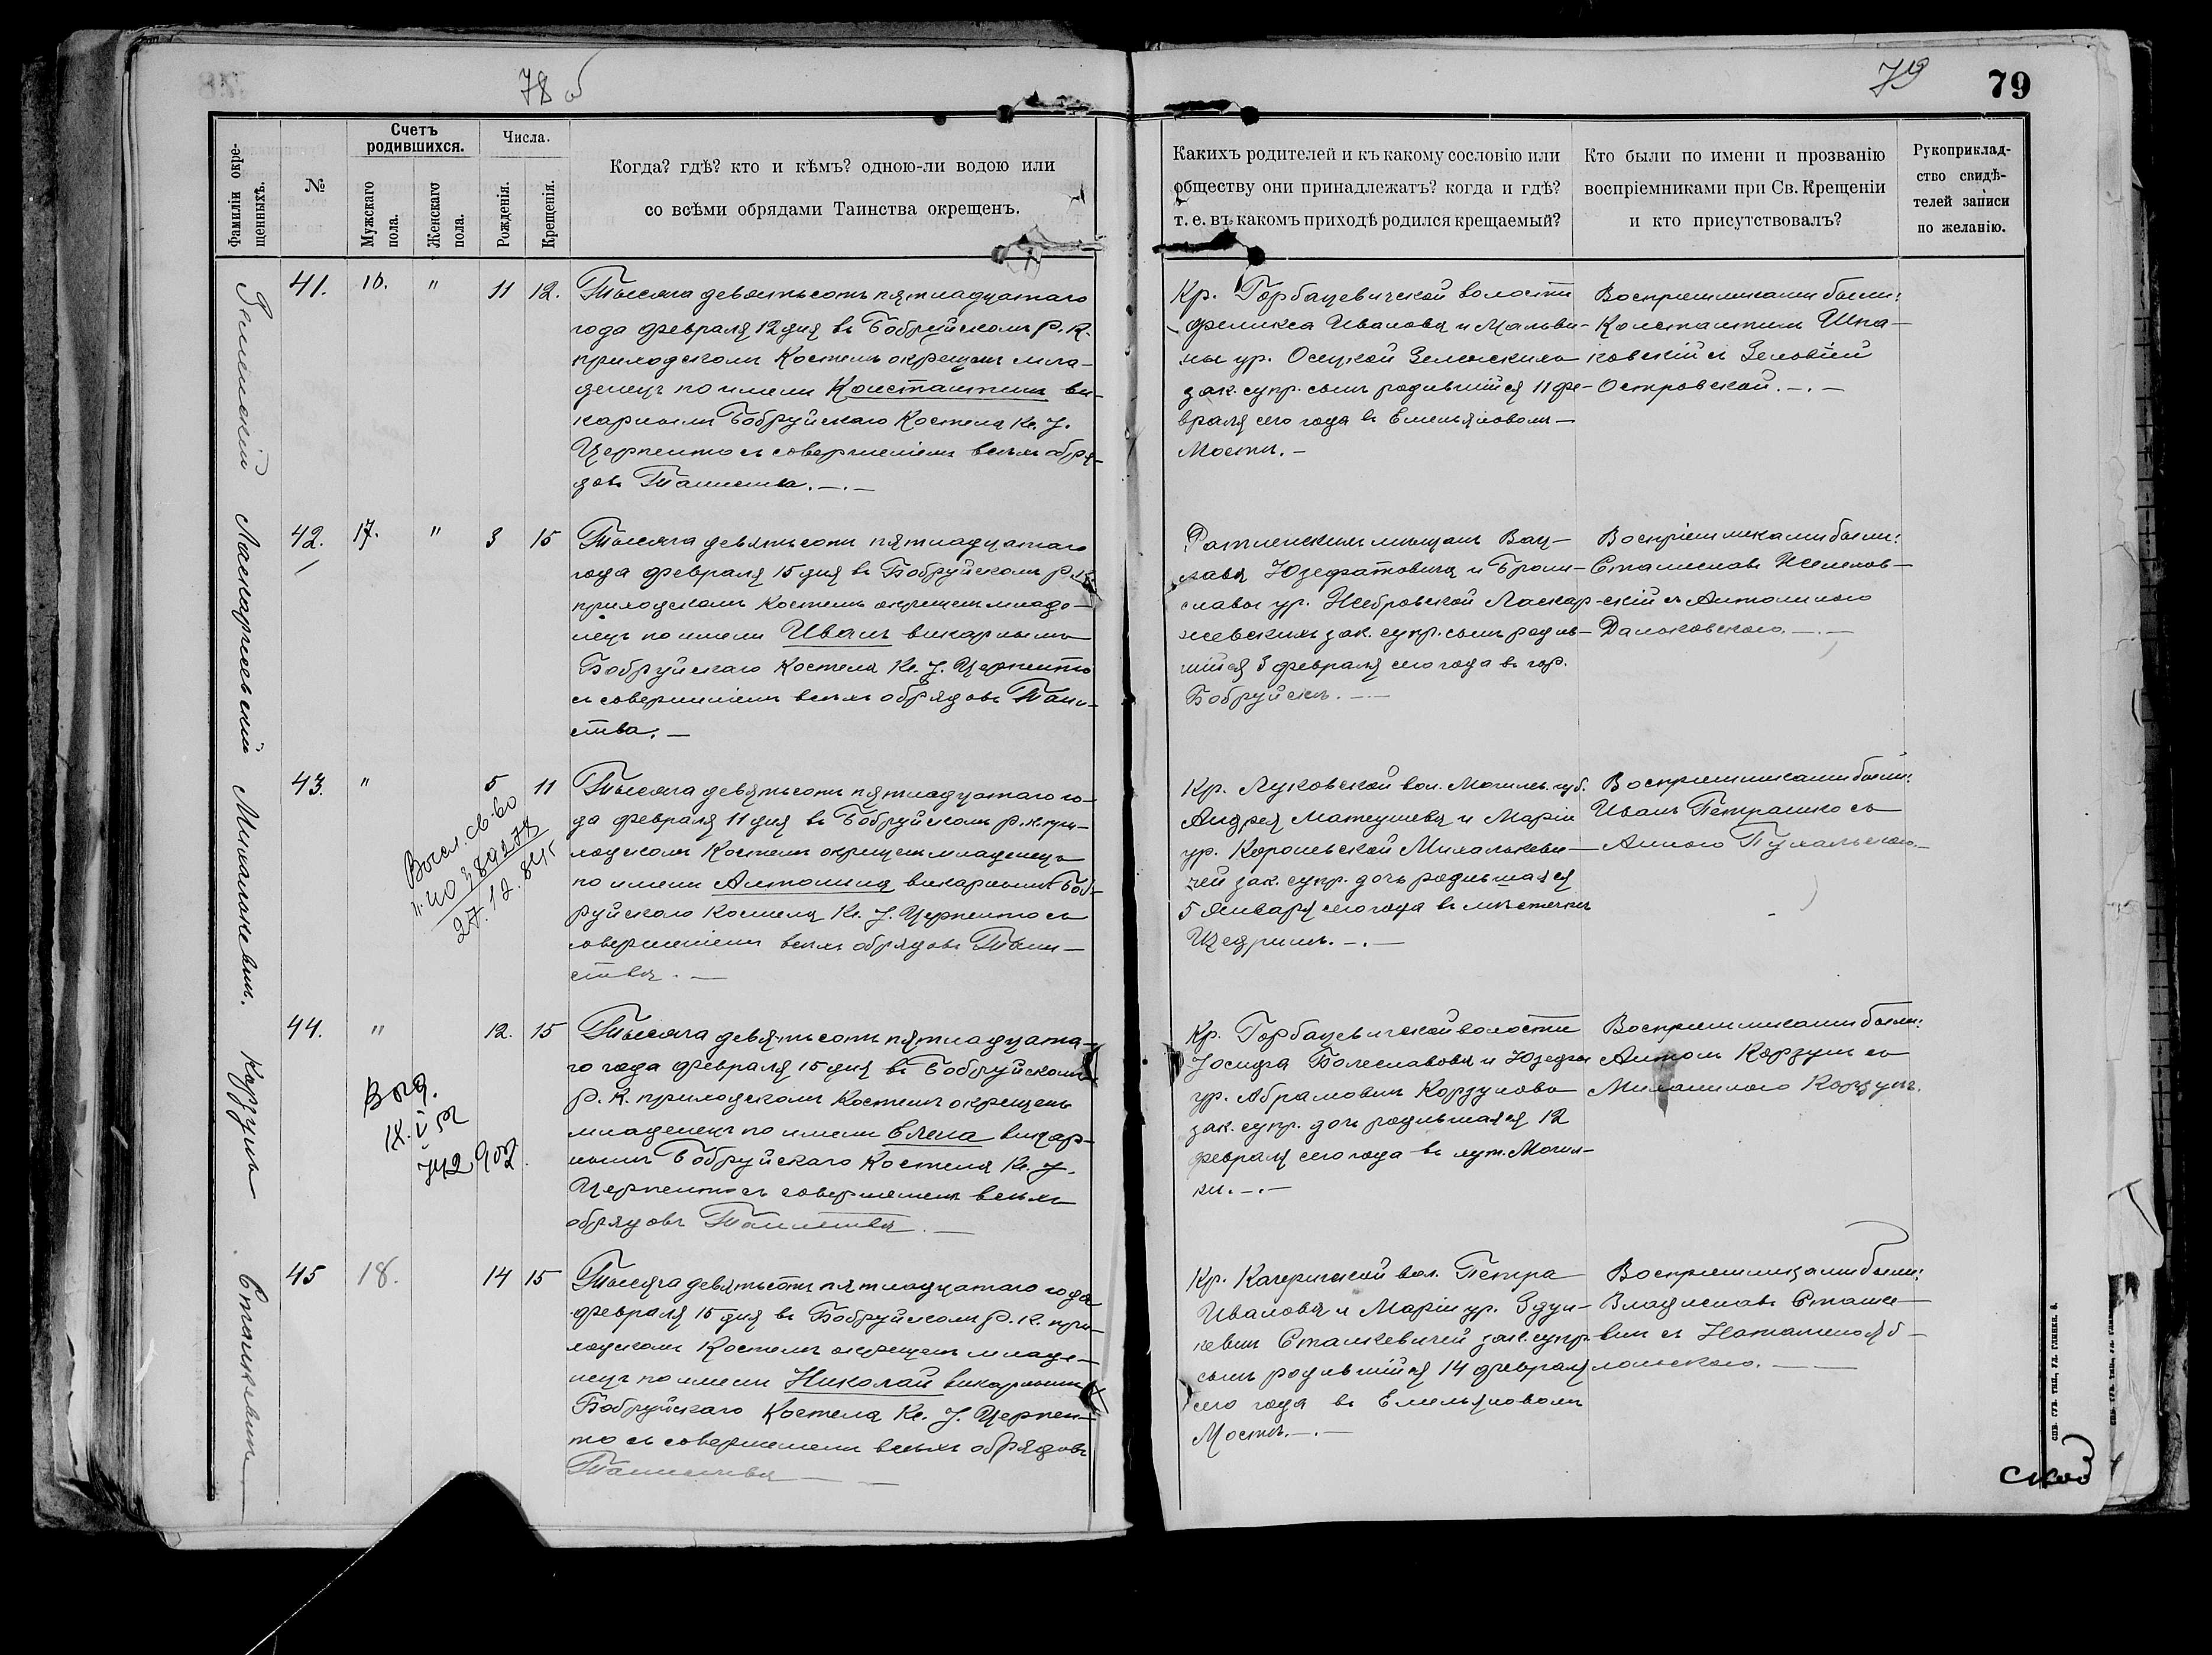 78 об
79
79
Фамиліи окрещенныхъ.
№
Счетъ родившихся.
Мужскаго пола.
Женскаго пола.
Числа.
Рожденія.
Крещенія.
Когда? гдѣ? кто и кѣмъ? одною-ли водою или
со всѣми обрядами Таинства окрещенъ.
Какихъ родителей и къ какому сословію или
обществу они принадлежатъ? когда и гдѣ?
т. е. въ какомъ приходѣ родился крещаемый?
Кто были по имени и прозванію
воспріемниками при Св. Крещеніи
и кто присутствовалъ?
Рукоприклад-
ство свидѣ-
телей записи
по желанію.
Зеленскій
41.
16.
"
11
12.
Тысяча девятьсотъ пятнадцатаго
года февраля 12 дня въ Бобруйскомъ Р. К.
приходскомъ Костелѣ окрещенъ мла-
денецъ по имени Константинъ ви-
карнымъ Бобруйскаго Костела Кс. І.
Церпенто съ совершеніемъ всѣхъ обря-
довъ Таинства. —.—
Кр. Горбацевичской волости
Феликса Иванова и Мальви-
ны ур. Осецкой Зеленскихъ
зак. супр. сынъ родившійся 11 фе-
враля сего года въ Емельяновомъ —
Мостѣ. —
Воспріемниками были:
Константинъ
съ Зеновіей
Островской. —.—
Ласкаржевскій
42.
17.
"
3
15
Тысяча девятьсотъ пятнадцатаго
года февраля 15 дня въ Бобруйскомъ Р. К.
приходскомъ Костелѣ окрещенъ младе-
нецъ по имени Иванъ викарнымъ
Бобруйскаго Костела Кс. І. Церпенто
съ совершеніемъ всѣхъ обрядовъ Таин-
ства. —
мѣщанъ Вац-
лава Юзефатовича и Брони-
славы ур. Жебровской Ласкар-
жевскихъ зак. супр. сынъ родив-
шійся 3 февраля сего года въ гор.
Бобруйскѣ. —.—
Воспріемниками были:
Станиславъ
съ Антониною
Даньковскою. —.—
Михалькевич.
43.
"
5
11
Тысяча девятьсотъ пятнадцатаго го-
да февраля 11 дня въ Бобруйскомъ Р. К. при-
ходскомъ Костелѣ окрещенъ младенецъ
по имени Антонина викарнымъ Боб-
руйскаго Костела Кс. І. Церпенто съ
совершеніемъ всѣхъ обрядовъ Таин-
ства. —
Кр. Луковской вол. Могилев. губ.
Андрея Матеушева и Маріи
ур. Королевской Михалькеви-
чей зак. супр. дочь родившаяся
5 Января сего года въ мѣстечкѣ
Щедринѣ. —.—
Воспріемниками были:
Иванъ Петрашко съ
Анною
44.
"
12.
15
Тысяча девятьсотъ пятнадцата-
го года февраля 15 дня въ Бобруйскомъ
Р. К. приходскомъ Костелѣ окрещенъ
младенецъ по имени Елена викар-
нымъ Бобруйскаго Костела Кс. І.
Церпенто съ совершеніемъ всѣхъ
обрядовъ Таинства. —
Корзунъ
Кр. Горбацевичской волости
Іосифа Болеславова и Юзефы
ур. Абрамовичъ Корзуновъ
зак. супр. дочь родившаяся 12
февраля сего года въ хут. Могил-
ки. —.—
Воспріемниками были:
Антонъ Корзунъ съ
Михалиною Корзунъ.
Станкевичъ
45
18.
14
15
Тысяча девятьсотъ пятнадцатаго года
февраля 15 дня въ Бобруйскомъ Р. К. при-
ходскомъ Костелѣ окрещенъ младе-
нецъ по имени Николай викарнымъ
Бобруйскаго Костела Кс. І. Церпен-
то съ совершеніемъ всѣхъ обрядовъ
Таинства —
Кр. Качеричской вол. Петра
Иванова и Маріи ур. Здун-
кевич Станкевичей зак. супр.
сынъ родившійся 14 февраля
сего года въ Емельяновомъ
Мостѣ. —.—
Воспріемниками были:
Владиславъ Станке-
вич съ Яб-
лонскою. —